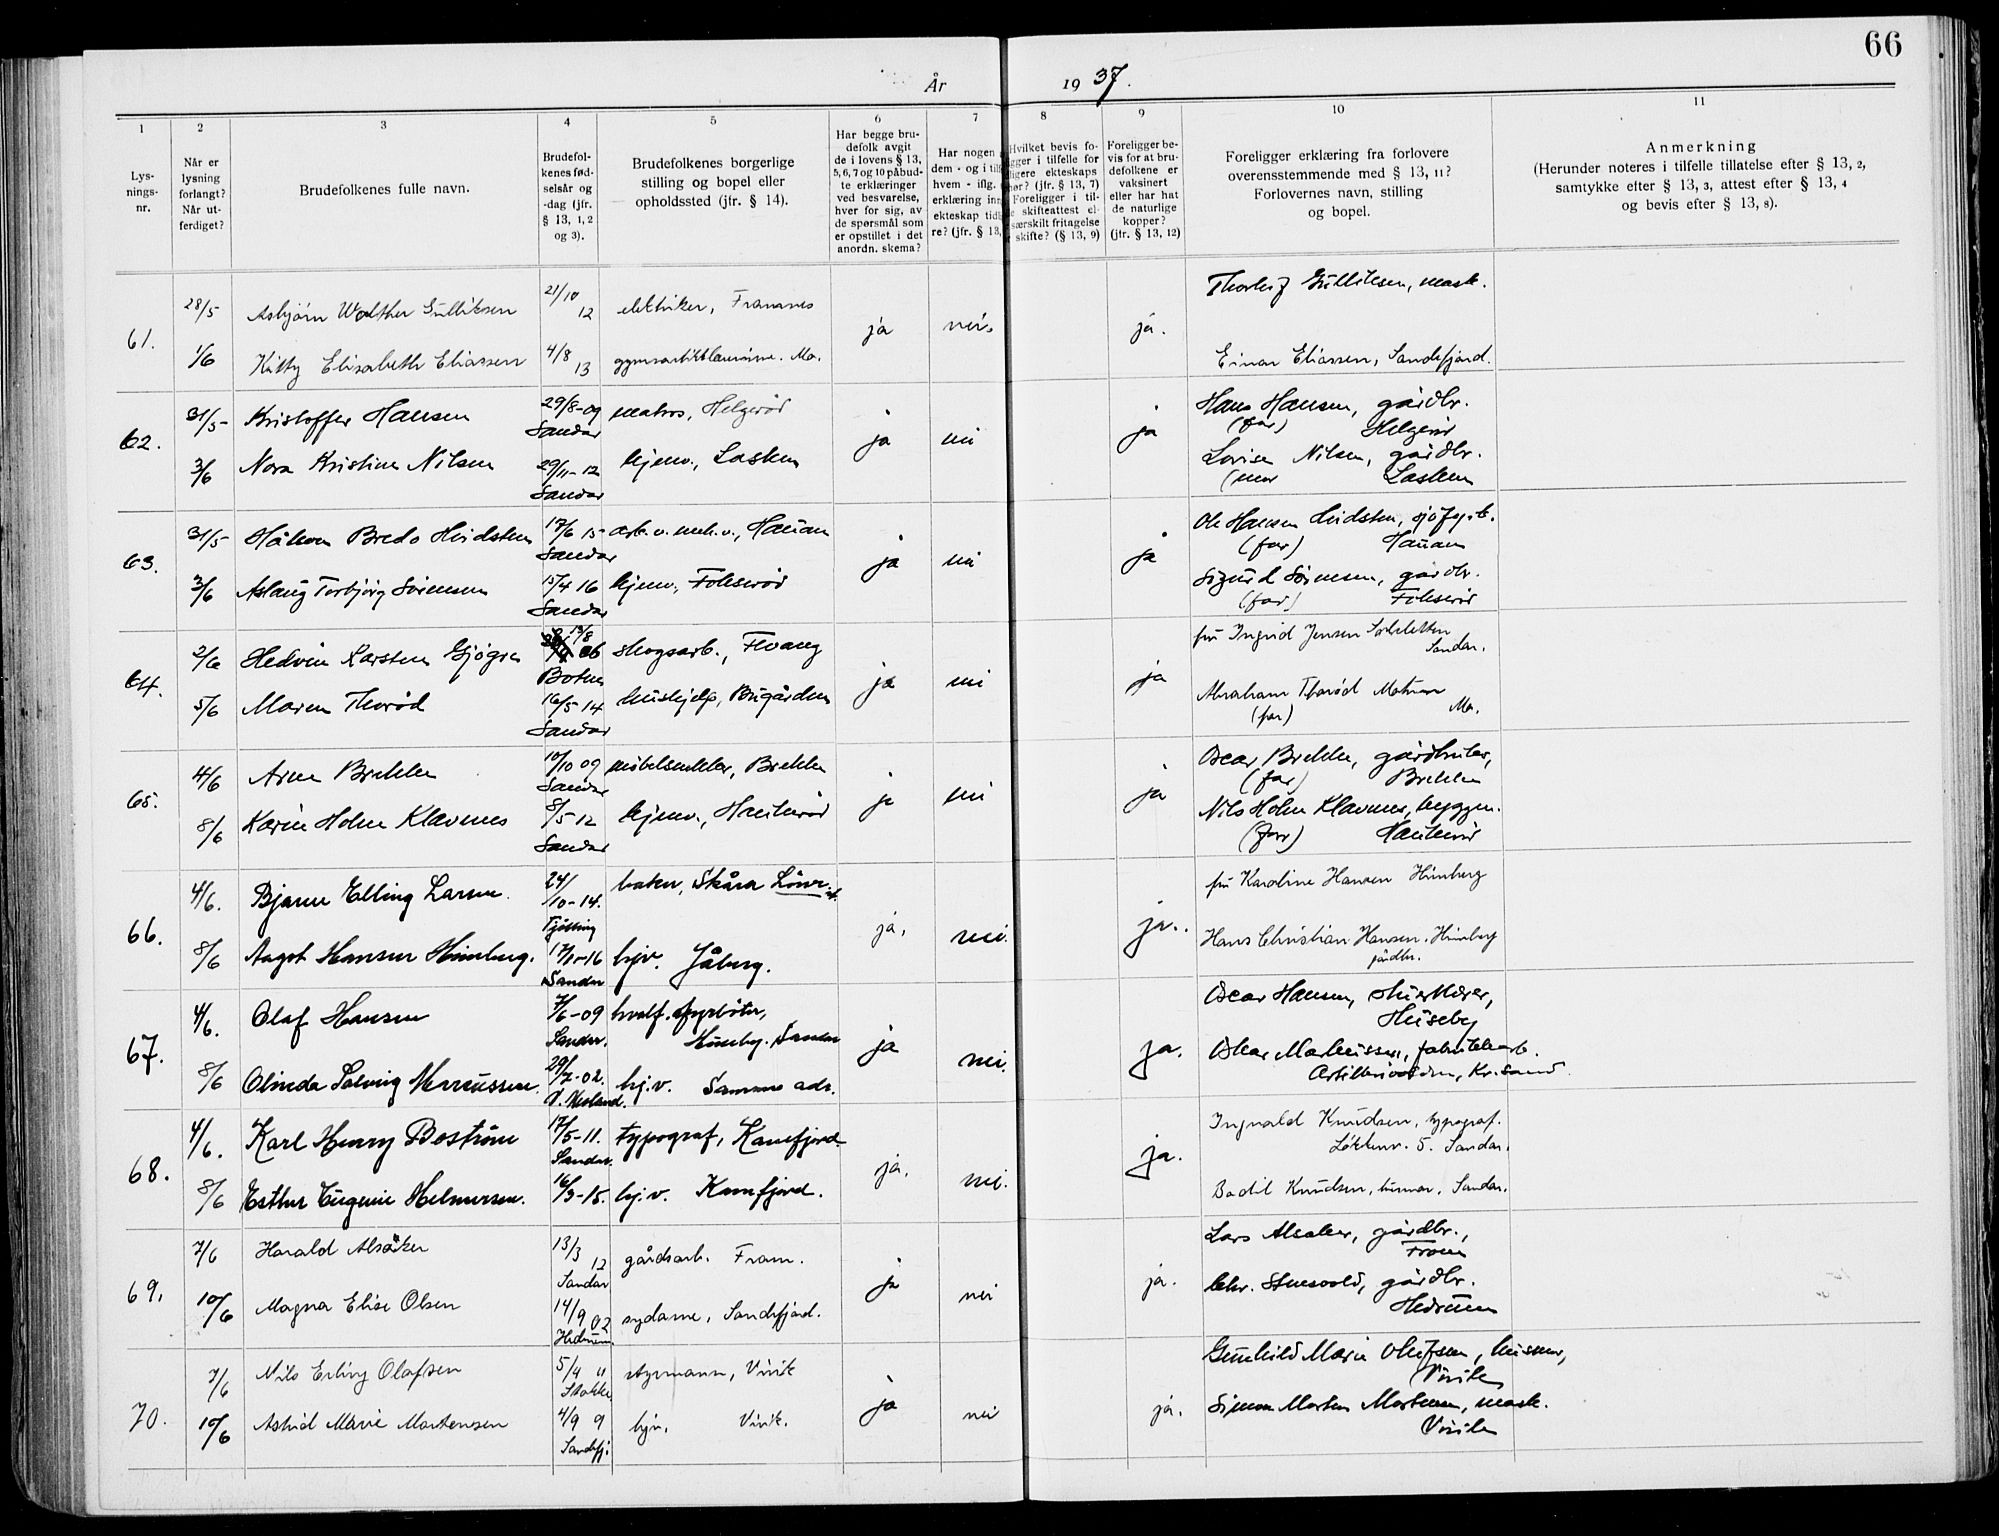 66
År 1937.
1 2 3 4 5 6 7 8 9 10 11
Lys-
nings-
nr.
Når er
lysning
forlangt?
Når ut-
ferdiget?
Brudefolkenes fulle navn.
Brudefol-
kenes fød-
selsår og
-dag (jfr.
§ 13, 1, 2
og 3).
Brudefolkenes borgerlige
stilling og bopel eller
opholdssted (jfr. § 14).
Har begge bru-
defolk avgit
de i lovens § 13,
5, 6, 7 og 10 påbud-
te erklæringer
ved besvarelse,
hver for sig, av
de spørsmål som
er opstillet i det
anordn. skema?
Har nogen
dem - og i til
hvem - iflg.
erklæring inn
ekteskap tid
re? (jfr. § 13,
Hvilket bevis fo-
gger i tilfelle for
ligere ekteskaps
hør? (jfr. § 13, 7)
Foreligger i til-
e skifteattest el-
særskilt fritagelse
skifte? (§ 13, 9)
Foreligger be-
vis for at bru-
defolkene er
vaksinert
eller har hat
de naturlige
kopper?
(jfr. § 13, 12)
Foreligger erklæring fra forlovere
overensstemmende med § 13, 11?
Forlovernes navn, stilling
og bopel.
Anmerkning
(Herunder noteres i tilfelle tillatelse efter § 13, 2,
samtykke efter § 13, 3, attest efter § 13, 4
og bevis efter § 13, 8).
61. 28/5 Asbjørn Walther Gulliksen 21/10 12 elektriker, Framnes ja nei. ja. Gulliksen, mask.
1/6 Kitty Elisabeth Eliassen 4/8 13 Einar Eliassen, Sandefjord.
62. 31/5 Kristoffer Hansen 29/8-09 Sandar matros, Helgerød ja nei ja Hans Hansen, gårdbr.
(far) Helgerød
3/6 Nora Kristine Nilsen 29/11-12 Sandar hjemv., Lasken Lovise Nilsen, gårdbr.
(mor Lasken
63. 31/5 Håkon Bredo Hvidsten 17/6 15 Sandar arb. v. mek. v., Hauan ja nei ja Ole Hansen Hvidsten,
(far) Hauan
3/6 Aslaug Torbjørg Sørensen 15/4 16 Sandar hjemv., Fokserød Sigurd Sørensen, gårdbr.
(far) Fokserød
64. 2/6 Hedvin Karsten Gjøgri 19/8 06 Botne skogsarb., Flvang ja nei ja fru Ingrid Jensen
Sandar.
5/6 Maren Thorød 16/5 14 Sandar hushjelp, Bugården Abraham Thorød
(far)
65. 4/6 Arne Brekke 10/10 09 Sandar møbelsnekker, Brekke ja nei ja Oscar Brekke, gårdbruker,
(far) Brekke
8/6 Karin Holm Klavenes 8/5 12 Sandar hjemv., Haukerød Nils Holm Klavenes, byggm.
(far) Haukerød
66. 4/6. Bjarne Elling Larsen. 24/10-14. Tjølling baker, Skåra ja, nei. ja. fru Karoline Hansen Himberg
8/6 Aagot Hansen Himberg. 17/1-16 Sandar hjv. Jåberg. Hans Christian Hansen, Himberg
gårdbr.
67. 4/6. Olaf Hansen 7/6-09 Sandar. hvalf. fyrbøter,
Huseby. Sandar ja nei. ja. Oscar Hansen,
Huseby
8/6 Olinda Solveig Marcussen. 29/7-02. hj.v. Samme adr. Oskar Markussen, fabrikkarb.
Artillerivollen, Kr.sand.
68. 4/6. Karl Henry Boström 17/5-11. Sandar. typograf, Kamfjord ja. nei. ja. Ingvald Knudsen, typograf.
Løkkenv. 5. Sandar.
8/6 Esther Eugenie Helmersen. 16/3-15. hj.v. Kamfjord. Bodil Knudsen, husmor, Sandar.
69. 7/6 Harald Alsåker 13/3 12 Sandar gårdsarb. Fram. ja nei ja. Lars Alsaker, gårdbr.,
Fram
10/6 Magna Elise Olsen 14/9 02 Hedrum sydame, Sandefjord. Chr. gårdbr.
Hedrum
70. 7/6 Nils Erling Olafsen 5/4 11 Stokke styrmann, Virik ja nei ja. Gunhild Marie Olafsen, husmor,
Virik
10/6 Astrid Marie Mortensen 4/9 9 Sandefj. hjv. Virik. Simon Morten Mortensen, mask.
Virik